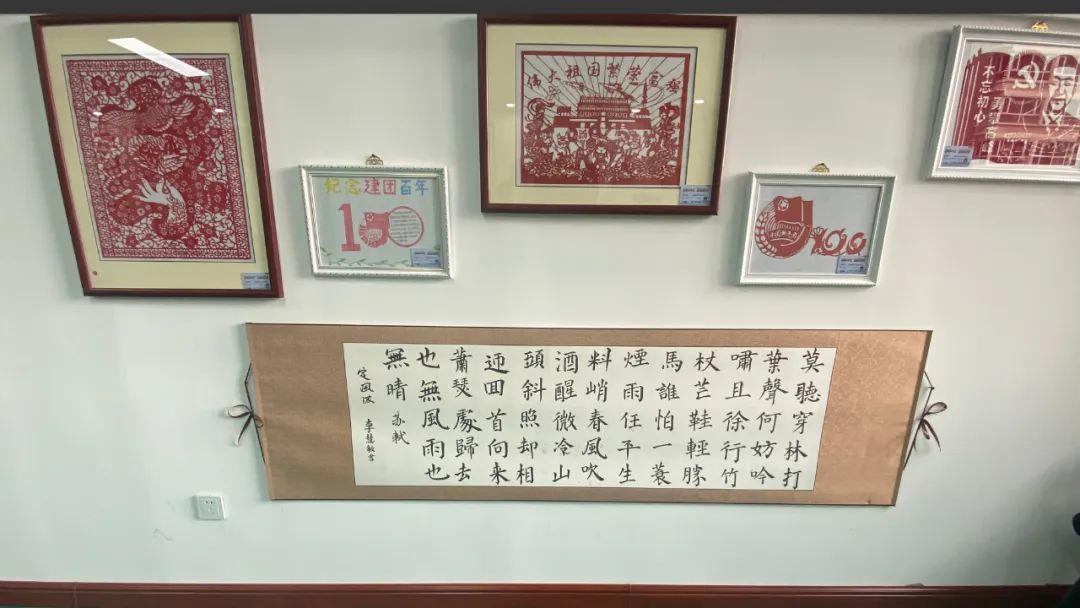 伟大祖国繁荣富强
纪念建团百年
100
100
不忘初心
莫聽穿林打
葉聲何妨吟
嘯且徐行竹
杖芒鞋輕勝
馬誰怕一蓑
煙雨任平生
料峭春風吹
酒醒微冷山
頭斜照却相
迎回首向来
蕭瑟處歸去
也無風雨也
無晴 苏軾
定風波 李慧敏書